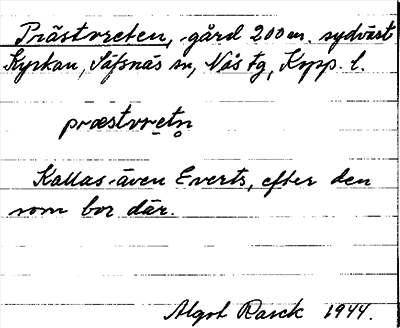 Prästvreten, gård 200 m. sydväst
Kyrkan, Säfsnäs sn, Nås tg, Kopp. l.
præstvrẹtn̥
Kallas även Everts, efter den
som bor där.
Algot Rasck 1944.